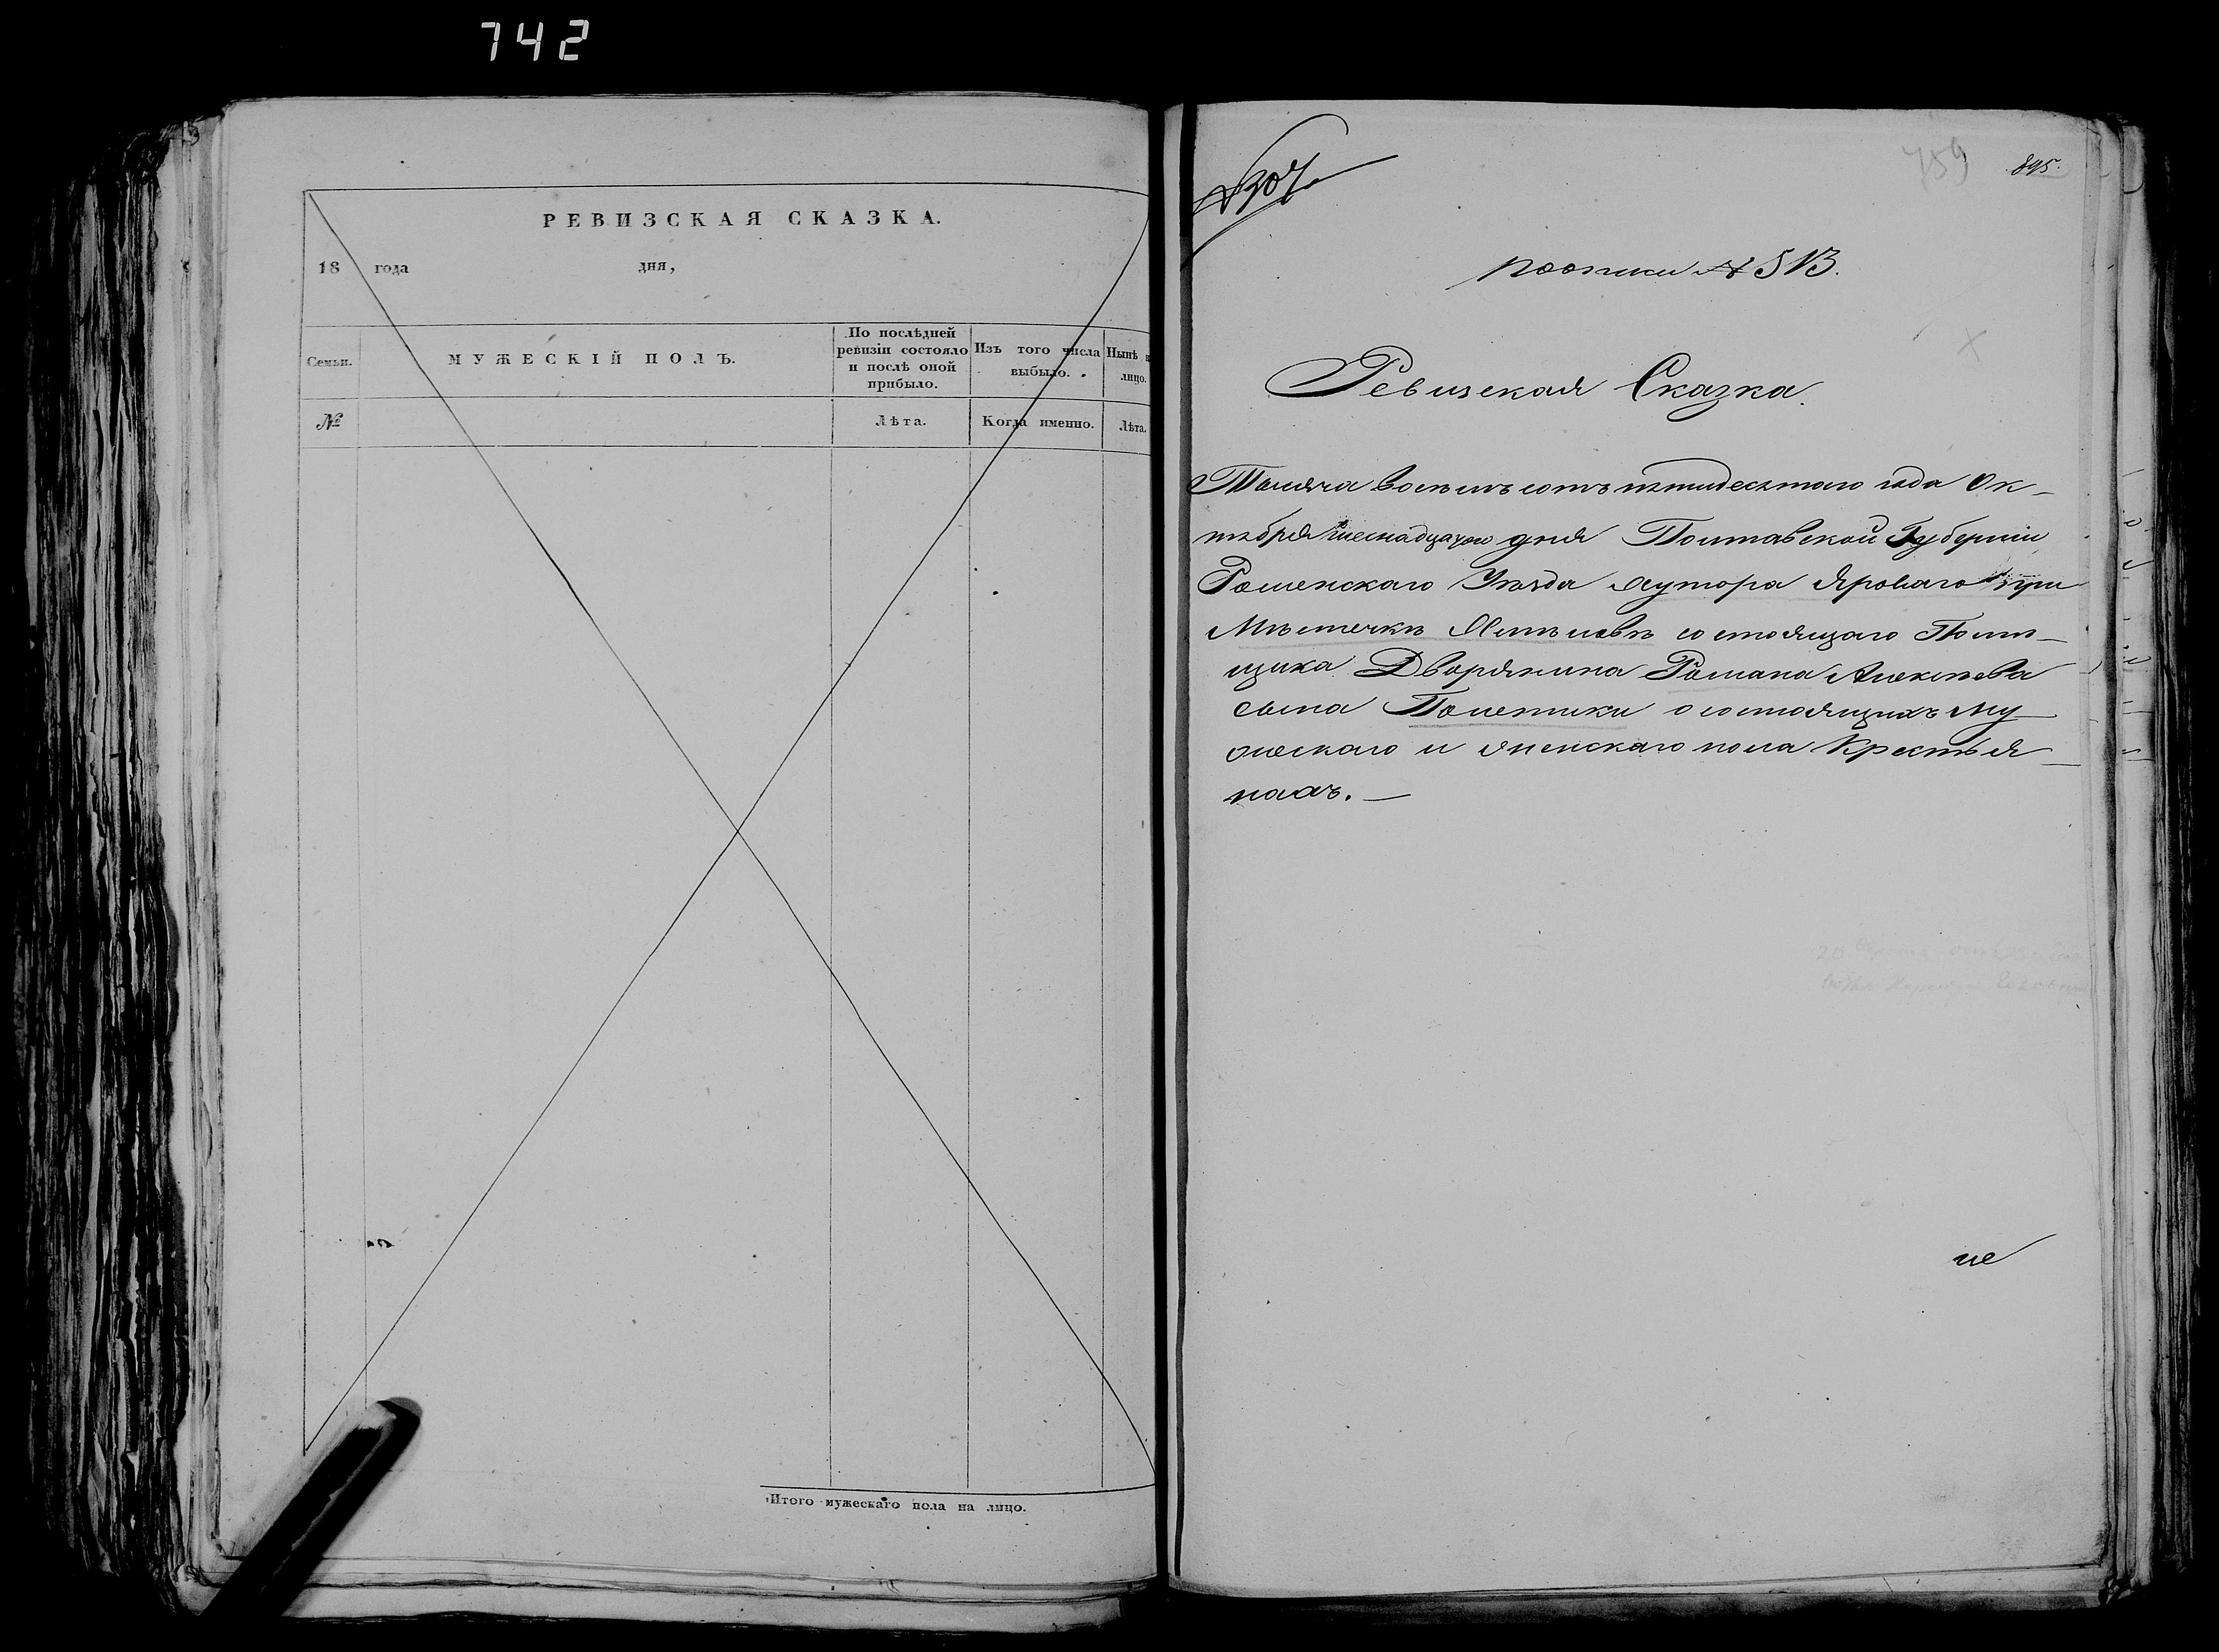 742
РЕВИЗСКАЯ СКАЗКА.
18 года дня,
Семьи. МУЖЕСКІЙ ПОЛЪ. По послѣдней ревизіи состояло и послѣ оной прибыло. Изъ того числа выбыло. Нынѣ лицо.
№ Лѣта. Когда именно. Лѣта.
Итого мужескаго пола на лицо.
759 895.
№ 307.
№ 513.
Ревизская Сказка.
Тысяча восемьсотъ пятидесятого года Ок-
тября шеснадцатого дня Полтавской Губерніи
Роменскаго Уѣзда хутора Яроваго при
Мѣстечкѣ состоящаго Помѣ-
щика Дворянина Романа Алексѣева
сына Полетики о состоящихъ му
жескаго и женскаго пола Крестья-
нахъ.